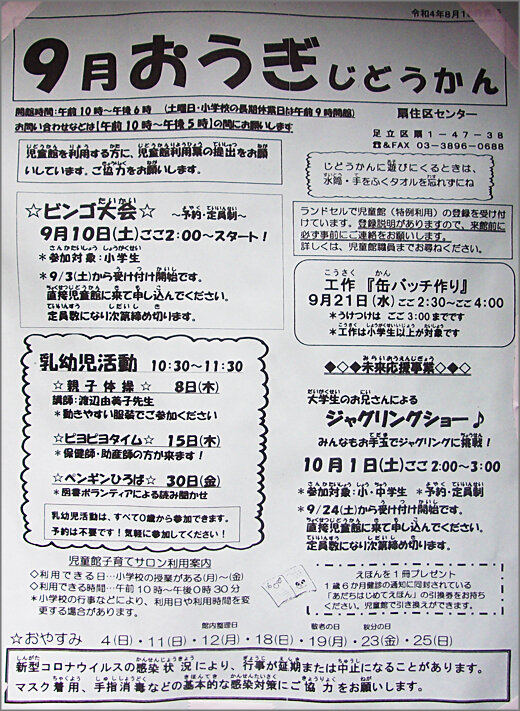 令和4年8月1
9月おうぎじどうかん
開館時間:午前10時~午後6時 (土曜日・小学校の長期休業日は午前9時開館)
お問い合わせなどは【午前10時~午後5時】の間にお願いします
扇住区センター
足立区扇1-47-38
☎&FAX 03-3896-0688
児童館を利用する方に、児童館利用票の提出をお願
いしています。ご協力をお願いします。
じどうかんに遊びにくるときは、
水筒・手をふくタオルを忘れずにね
☆ビンゴ大会☆ ~予約・定員制~
9月10日(土)ごご2:00~スタート!
*参加対象:小学生
*9/3(土)から受け付け開始です。
直接児童館に来て申し込んでください。
定員数になり次第締め切ります。
ランドセルで児童館(特例利用)の登録を受け付
けています。登録説明がありますので、来館前に
必ず事前にご連絡をお願いします。
詳しくは、児童館職員までお尋ねください。
工作『缶バッチ作り』
9月21日(水)ごご2:30~ごご4:00
*うけつけは ごご3:00までです
*工作は小学生以上が対象です
乳幼児活動 10:30~11:30
☆親子体操☆ 8日(木)
講師:渡辺由美子先生
*動きやすい服装でご参加ください
☆ピヨピヨタイム☆ 15日(木)
*保健師・助産師の方が来ます!
☆ペンギンひろば☆ 30日(金)
*図書ボランティアによる読み聞かせ
乳幼児活動は、すべて0歳から参加できます。
予約は不要です!気軽に参加してください!
◆◇◆未来応援事業◆◇◆
大学生のお兄さんによる
ジャグリングショー♪
みんなもお手玉でジャグリングに挑戦!
10月1日(土)ごご2:00~3:00
*参加対象:小・中学生 *予約・定員制
*9/24(土)から受け付け開始です。
直接児童館に来て申し込んでください。
定員数になり次第締め切ります。
児童館子育てサロン利用案内
◇利用できる日…小学校の授業がある(月)~(金)
◇利用できる時間…午前10時~午後0時30分
*小学校の行事などにより、利用日や利用時間を変
更する場合があります。
えほんを1冊プレゼント
1歳6か月健診の通知に同封されている
「あだちはじめてえほん」の引換券をお持ち
ください。児童館で引き換えができます。
館内整理日 敬老の日 秋分の日
☆おやすみ 4(日)・11(日)・12(月)・18(日)・19(月)・23(金)・25(日)
新型コロナウイルスの感染状況により、行事が延期または中止になることがあります。
マスク着用、手指消毒などの基本的な感染対策にご協力をお願いします。